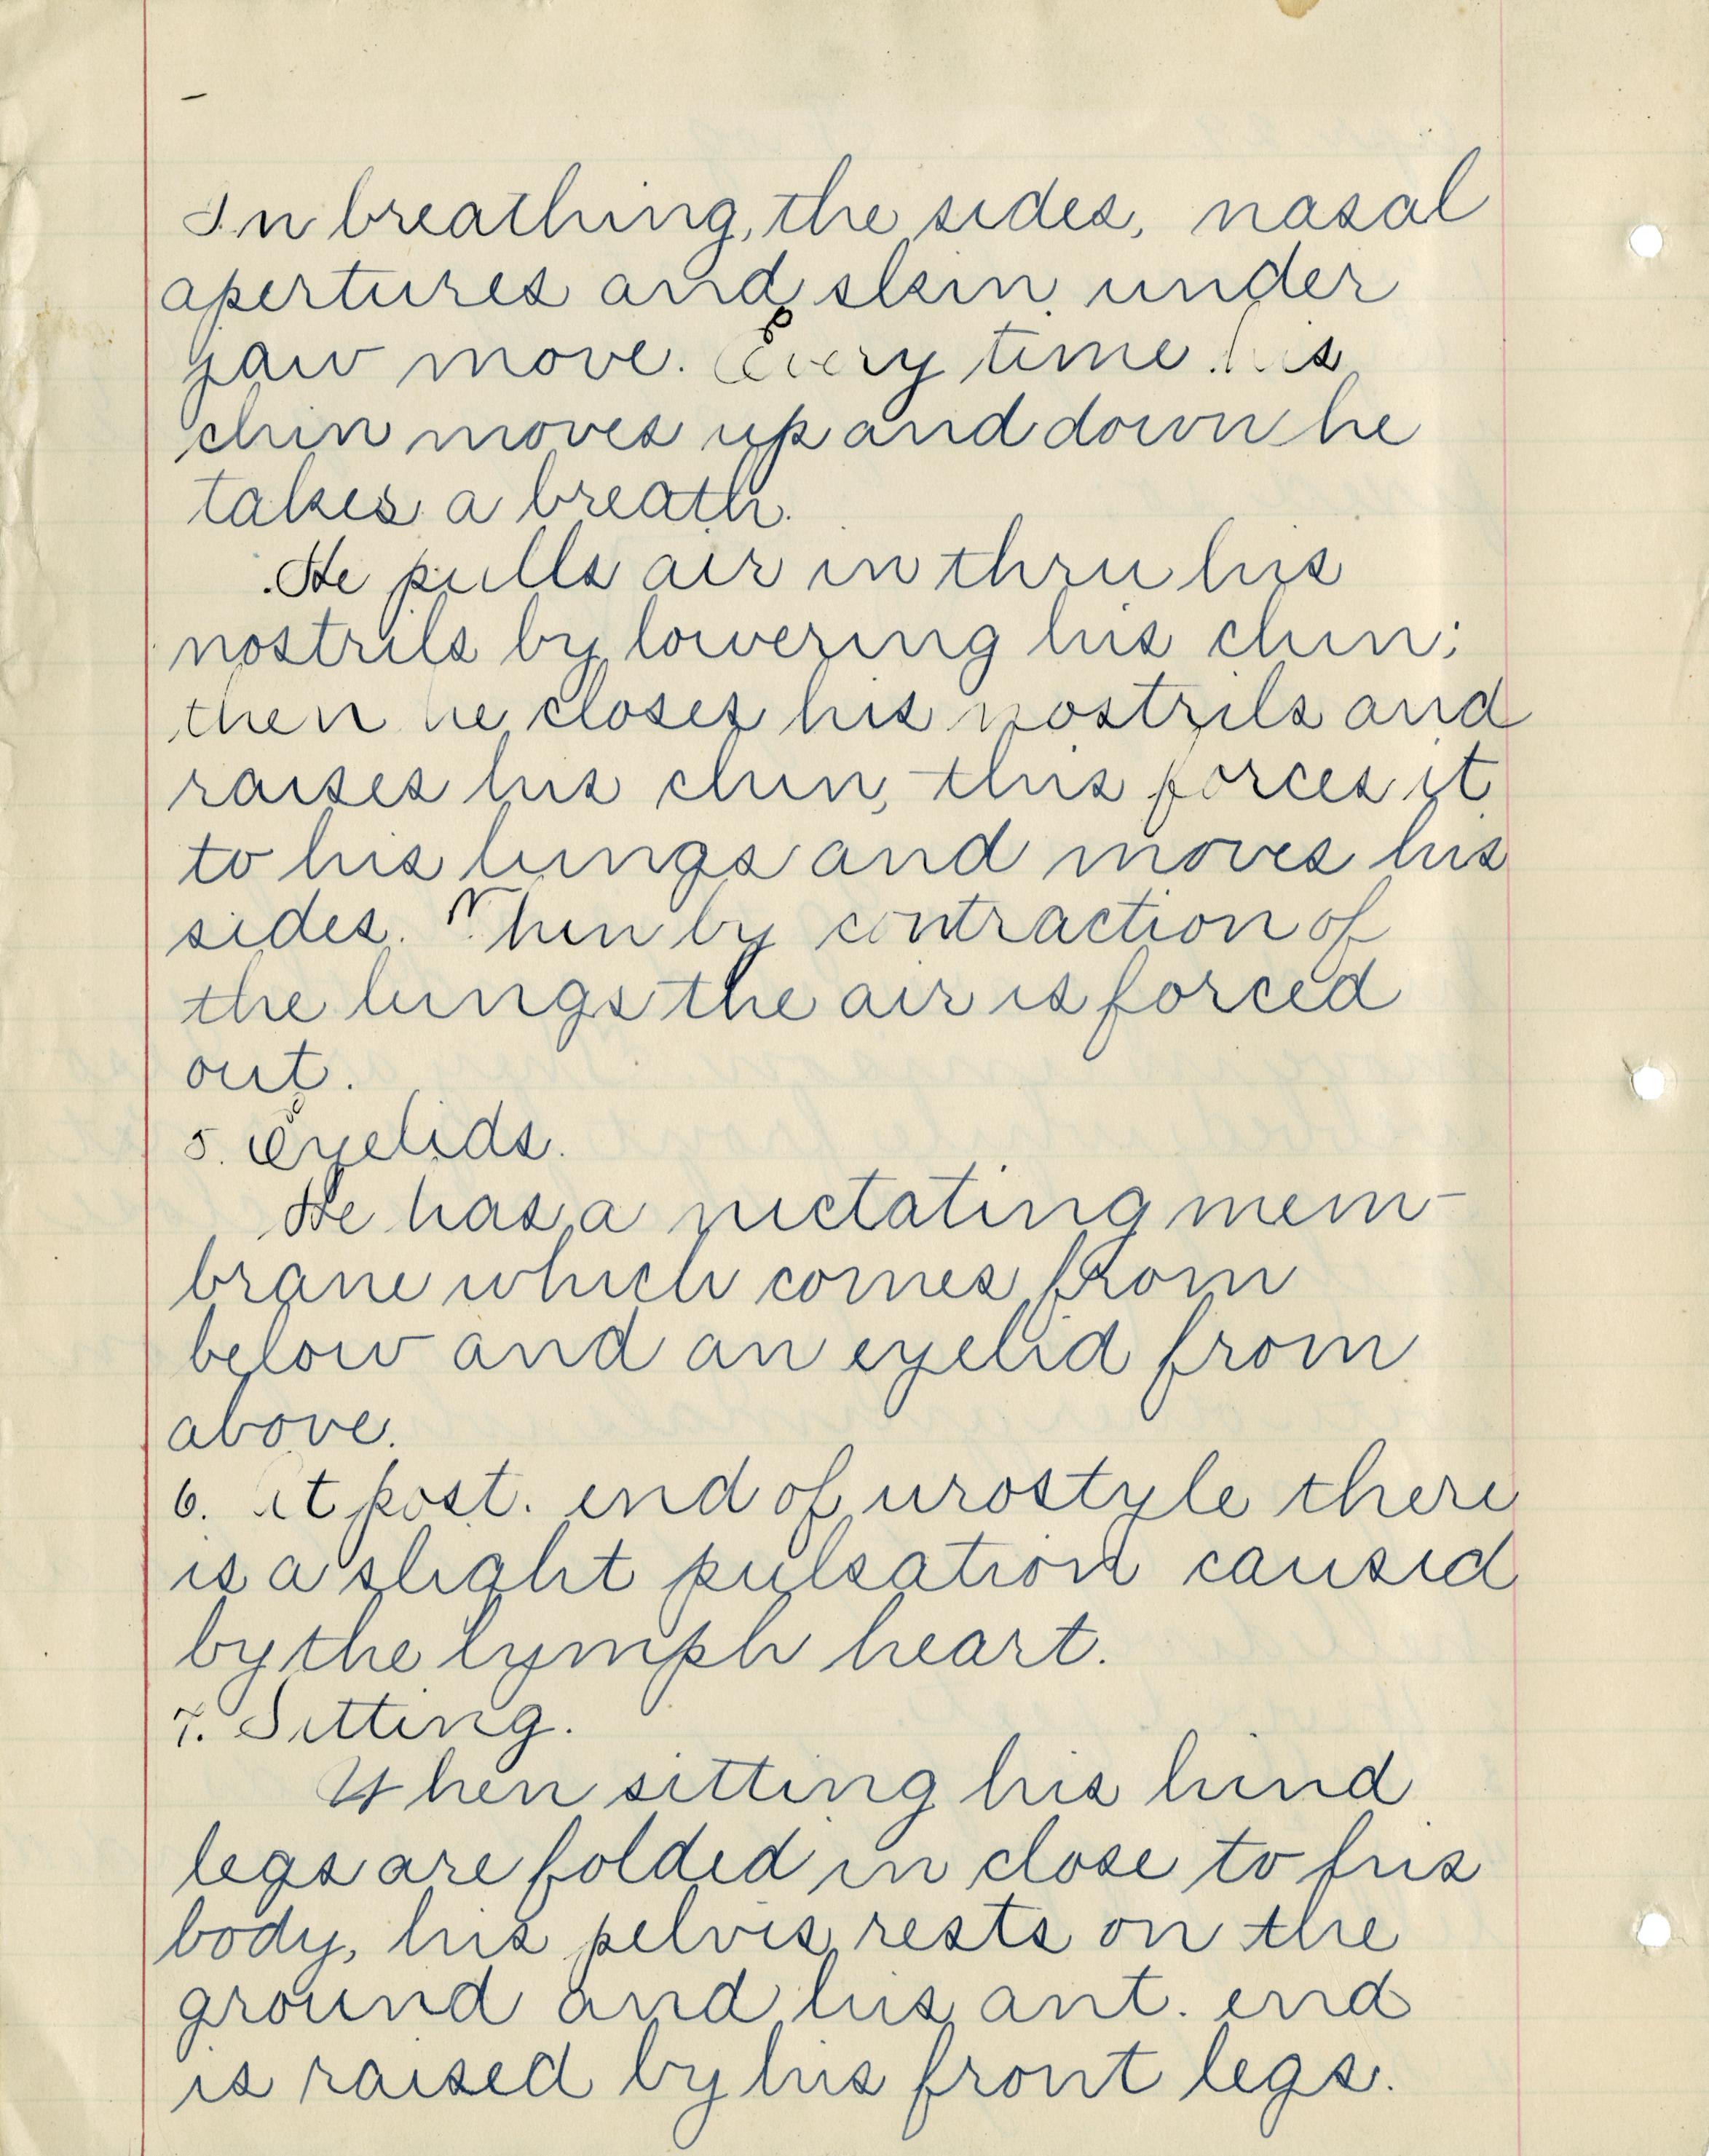 In breathing, the sides, nasal
apertures and skin under
jaw move. Every time his
chin moves up and down he
takes a breath.
He pulls air in thru his
nostrils by lowering his chin;
then he closes his nostrils and
raises his chin, this forces it
to his lungs and moves his
sides. Then by contraction of
the lungs the air is forced
out.
5. Eyelids.
He has a nictating mem-
brane which comes from
below and an eyelid from
above.
6. At post. end of urostyle there
is a slight pulsation caused
by the lymph heart.
7. Sitting.
When sitting his hind
legs are folded in close to his
body, his pelvis rests on the
ground and his ant. end
is raised by his front legs.